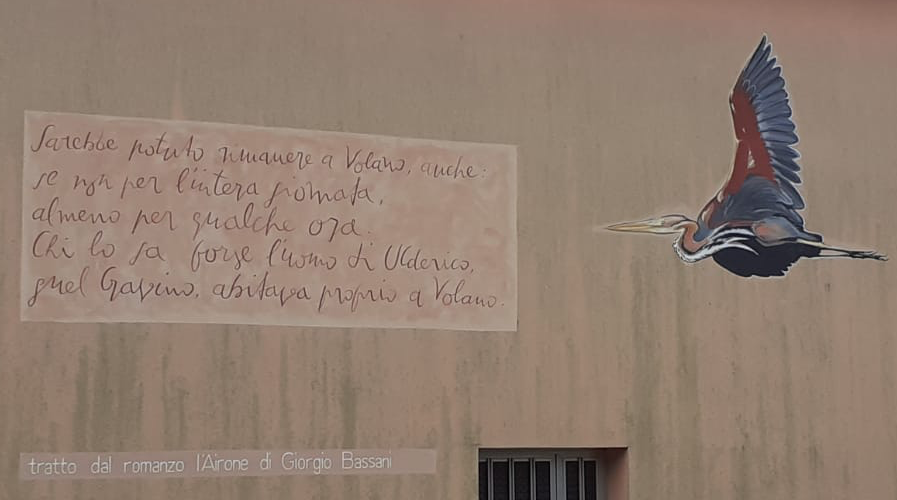 Sarebbe potuto rimanere a Volano, anche:
se non per l'intera giornata,
almeno per qualche ora.
Chi lo sa forse l'uomo di Ulderico,
quel Gavino, abitava proprio a Volano.
tratto dal romanzo l'Airone di Giorgio Bassani